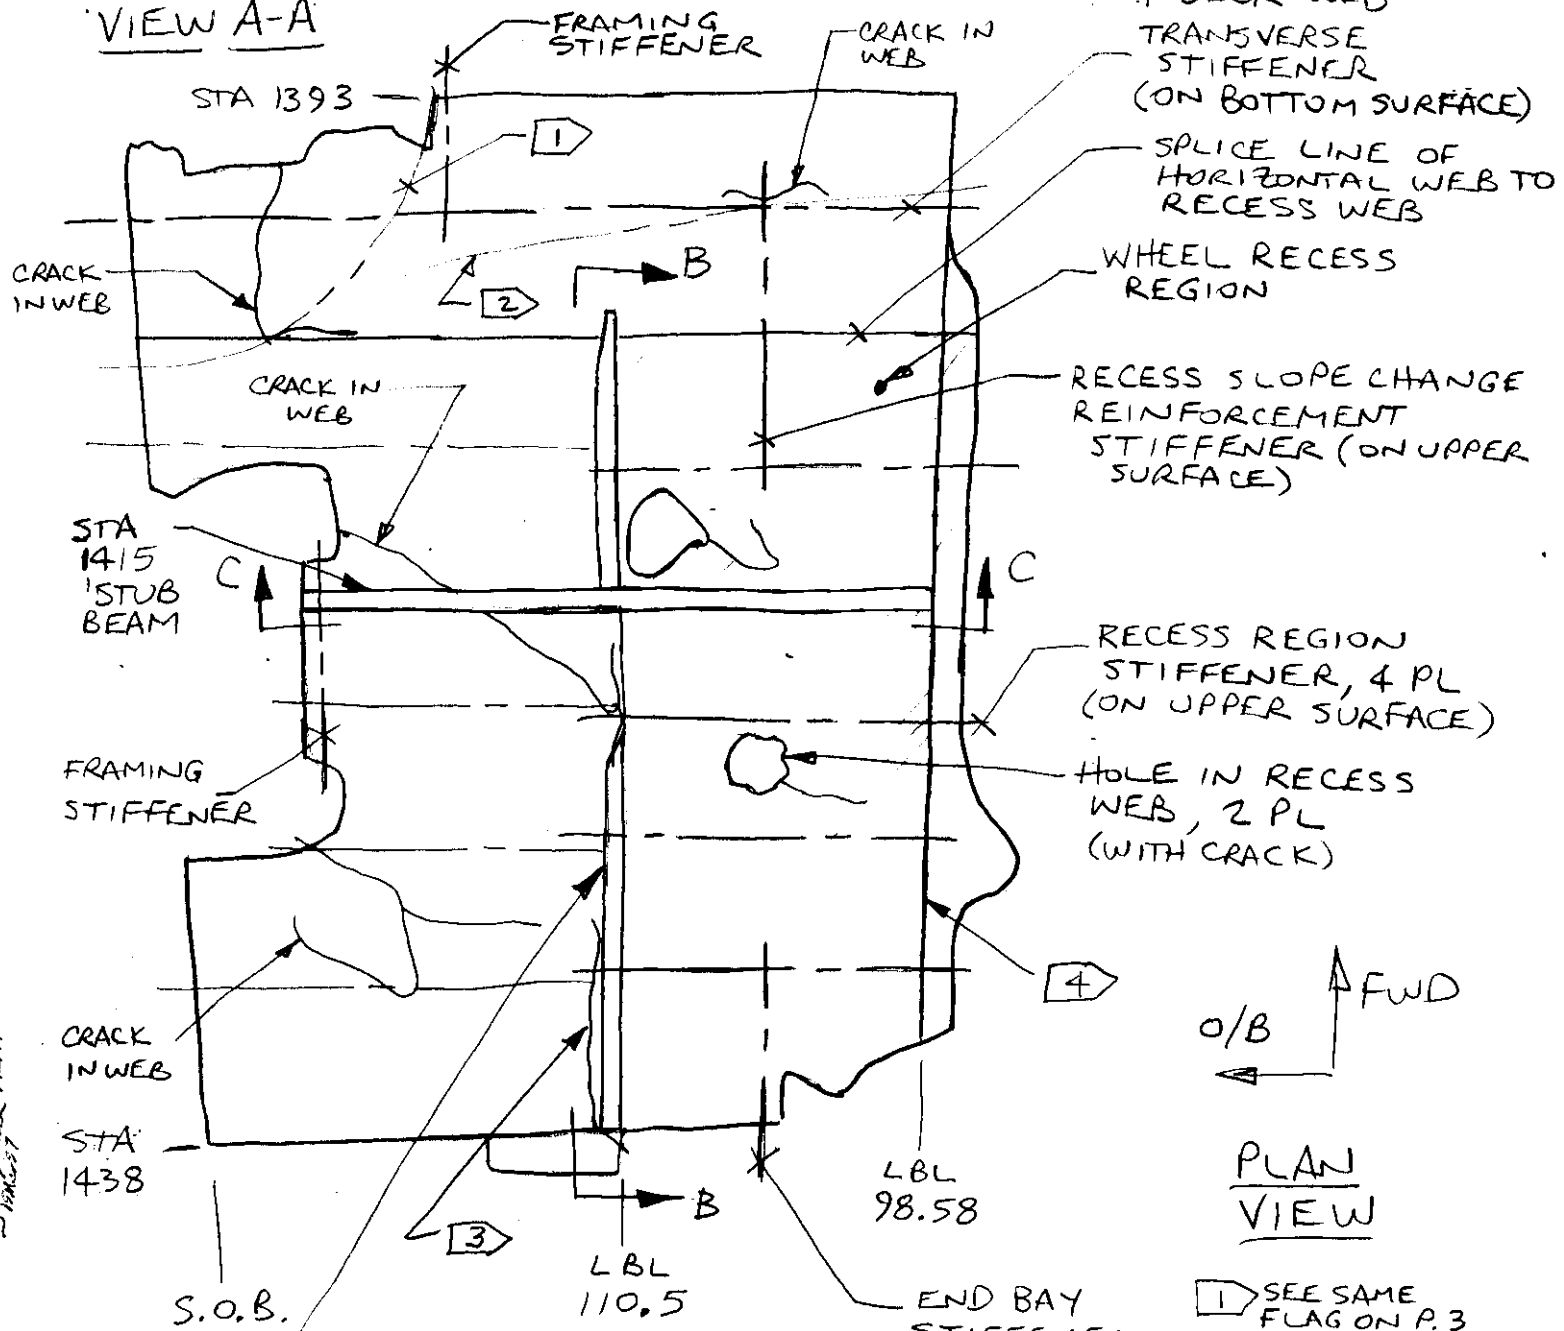 VIEW A-A
FRAMING
STIFFENER
CRACK IN
WEB
TRANSVERSE
STIFFENER
(ON BOTTOM SURFACE)
STA 1393
1
SPLICE LINE OF
HORIZONTAL WEB TO
RECESS WEB
CRACK
IN WEB
2
B
WHEEL RECESS
REGION
CRACK IN
WEB
RECESS SLOPE CHANGE
REINFORCEMENT
STIFFENER (ON UPPER
SURFACE)
STA
1415
STUB
BEAM
C
C
RECESS REGION
STIFFENER, 4 PL
(ON UPPER SURFACE)
FRAMING
STIFFENER
HOLE IN RECESS
WEB, 2 PL
(WITH CRACK)
4
FWD
O/B
CRACK
IN WEB
STA
1438
3
B
LBL
98.58
PLAN
VIEW
S.O.B.
LBL
110.5
END BAY
1 SEE SAME
FLAG ON P. 3